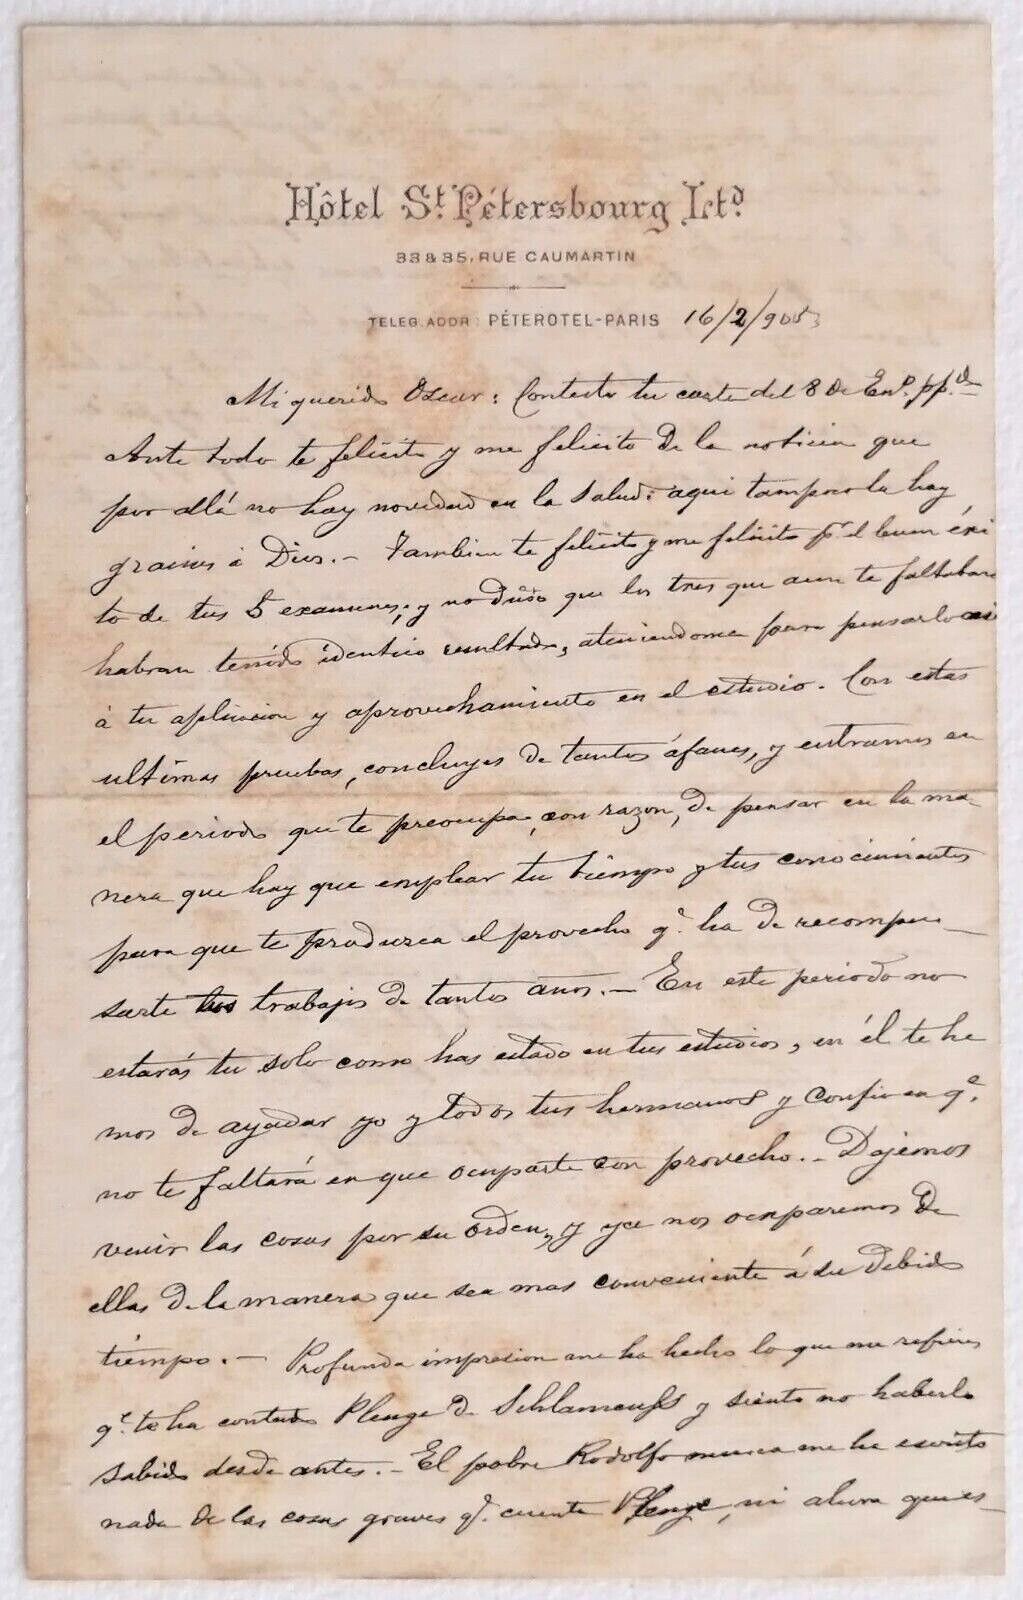 Hôtel St. Pétersbourg Ltd.
33 & 35, RUE CAUMARTIN
TELEG. ADDR: PÉTEROTEL-PARIS 16/2/903
Mi querido Oscar: Contesto tu carta del 8 de En.o pp.do
Ante todo te felicito y me felicito de la noticia que
por allá no hay novedad en la salud: aqui tampoco la hay
gracias á Dios. — Tambien te felicito y me felicito pr el buen éxi
to de tus 5 examenes; y no dudo que los tres que aun te faltaban
habran tenido identico resultado, ateniendome para pensarlo asi
á tu aplicacion y aprovechamiento en el estudio. Con estas
ultimas pruebas, concluyes de tantos áfanes, y entramos en
el periodo que te preocupa, con razon, de pensar en la ma-
nera que hay que emplear tu tiempo y tus conocimientos
para que te produzca el provecho q.e ha de recompen-
sarte tus trabajos de tantos años. — En este periodo no
estarás tu solo como has estado en tus estudios, en él te he
mos de ayudar yo y todos tus hermanos y confio en q.e
no te faltará en que ocuparte con provecho. — Dejemos
venir las cosas por su orden, y ya nos ocuparemos de
ellas de la manera que sea mas conveniente á su debido
tiempo. — Profunda impresion me ha hecho lo que me refieres
q.e te ha contado Plenge de y siento no haberlo
sabido desde antes. — El pobre Rodolfo nunca me ha escrito
nada de las cosas graves q.e cuenta Plenge, ni ahora que es-